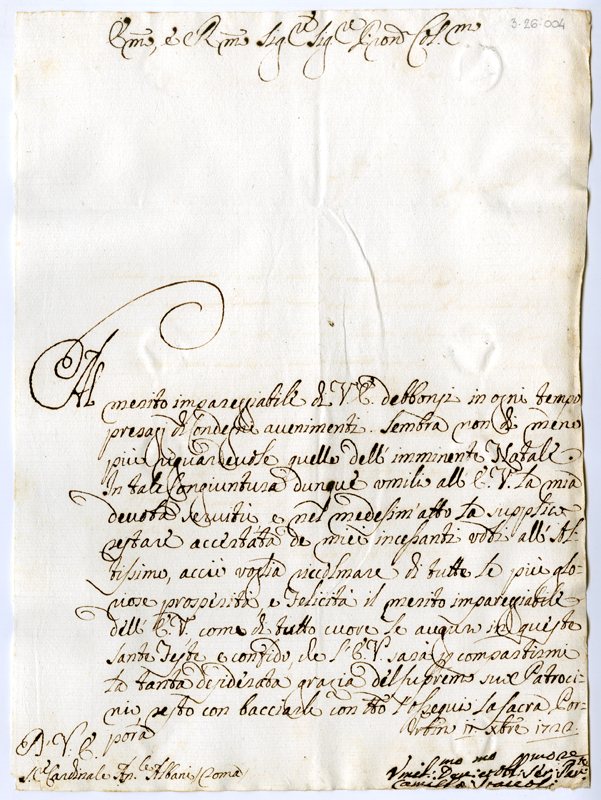 3-26-004
Em̃o, e Rmo Sigre Sigre Pron Colmo
Al
merito impareggiabile di V.E. debbonsi in ogni tempo
presagi di condegni avvenimenti. Sembra non di meno
più riguardevole quello dell' imminente Natale
In tale congiuntura dunque umilio all' E.V. la mia
devota servitù, e nel medesim' atto la supplico
restare accertata de miei incessanti voti all' Al-
tissimo, acciò voglia ricolmare di tutte le più glo-
riose prosperità, e Felicità il merito impareggiabile
dell' E.V. come di tutto cuore le auguro in queste
sante Feste e confido, che l' E.V. sarà compartirmi
la tanto desiderata grazia del supremo suo Patroci-
nio resto con bacciarle con tto l'ossequi la Sacra Por-
pora Urbin 11 Xbre 172
D. V. E.
Sr Cardinale An.le Albani Roma
Umilmo Devmo Obl Ser
Camilla